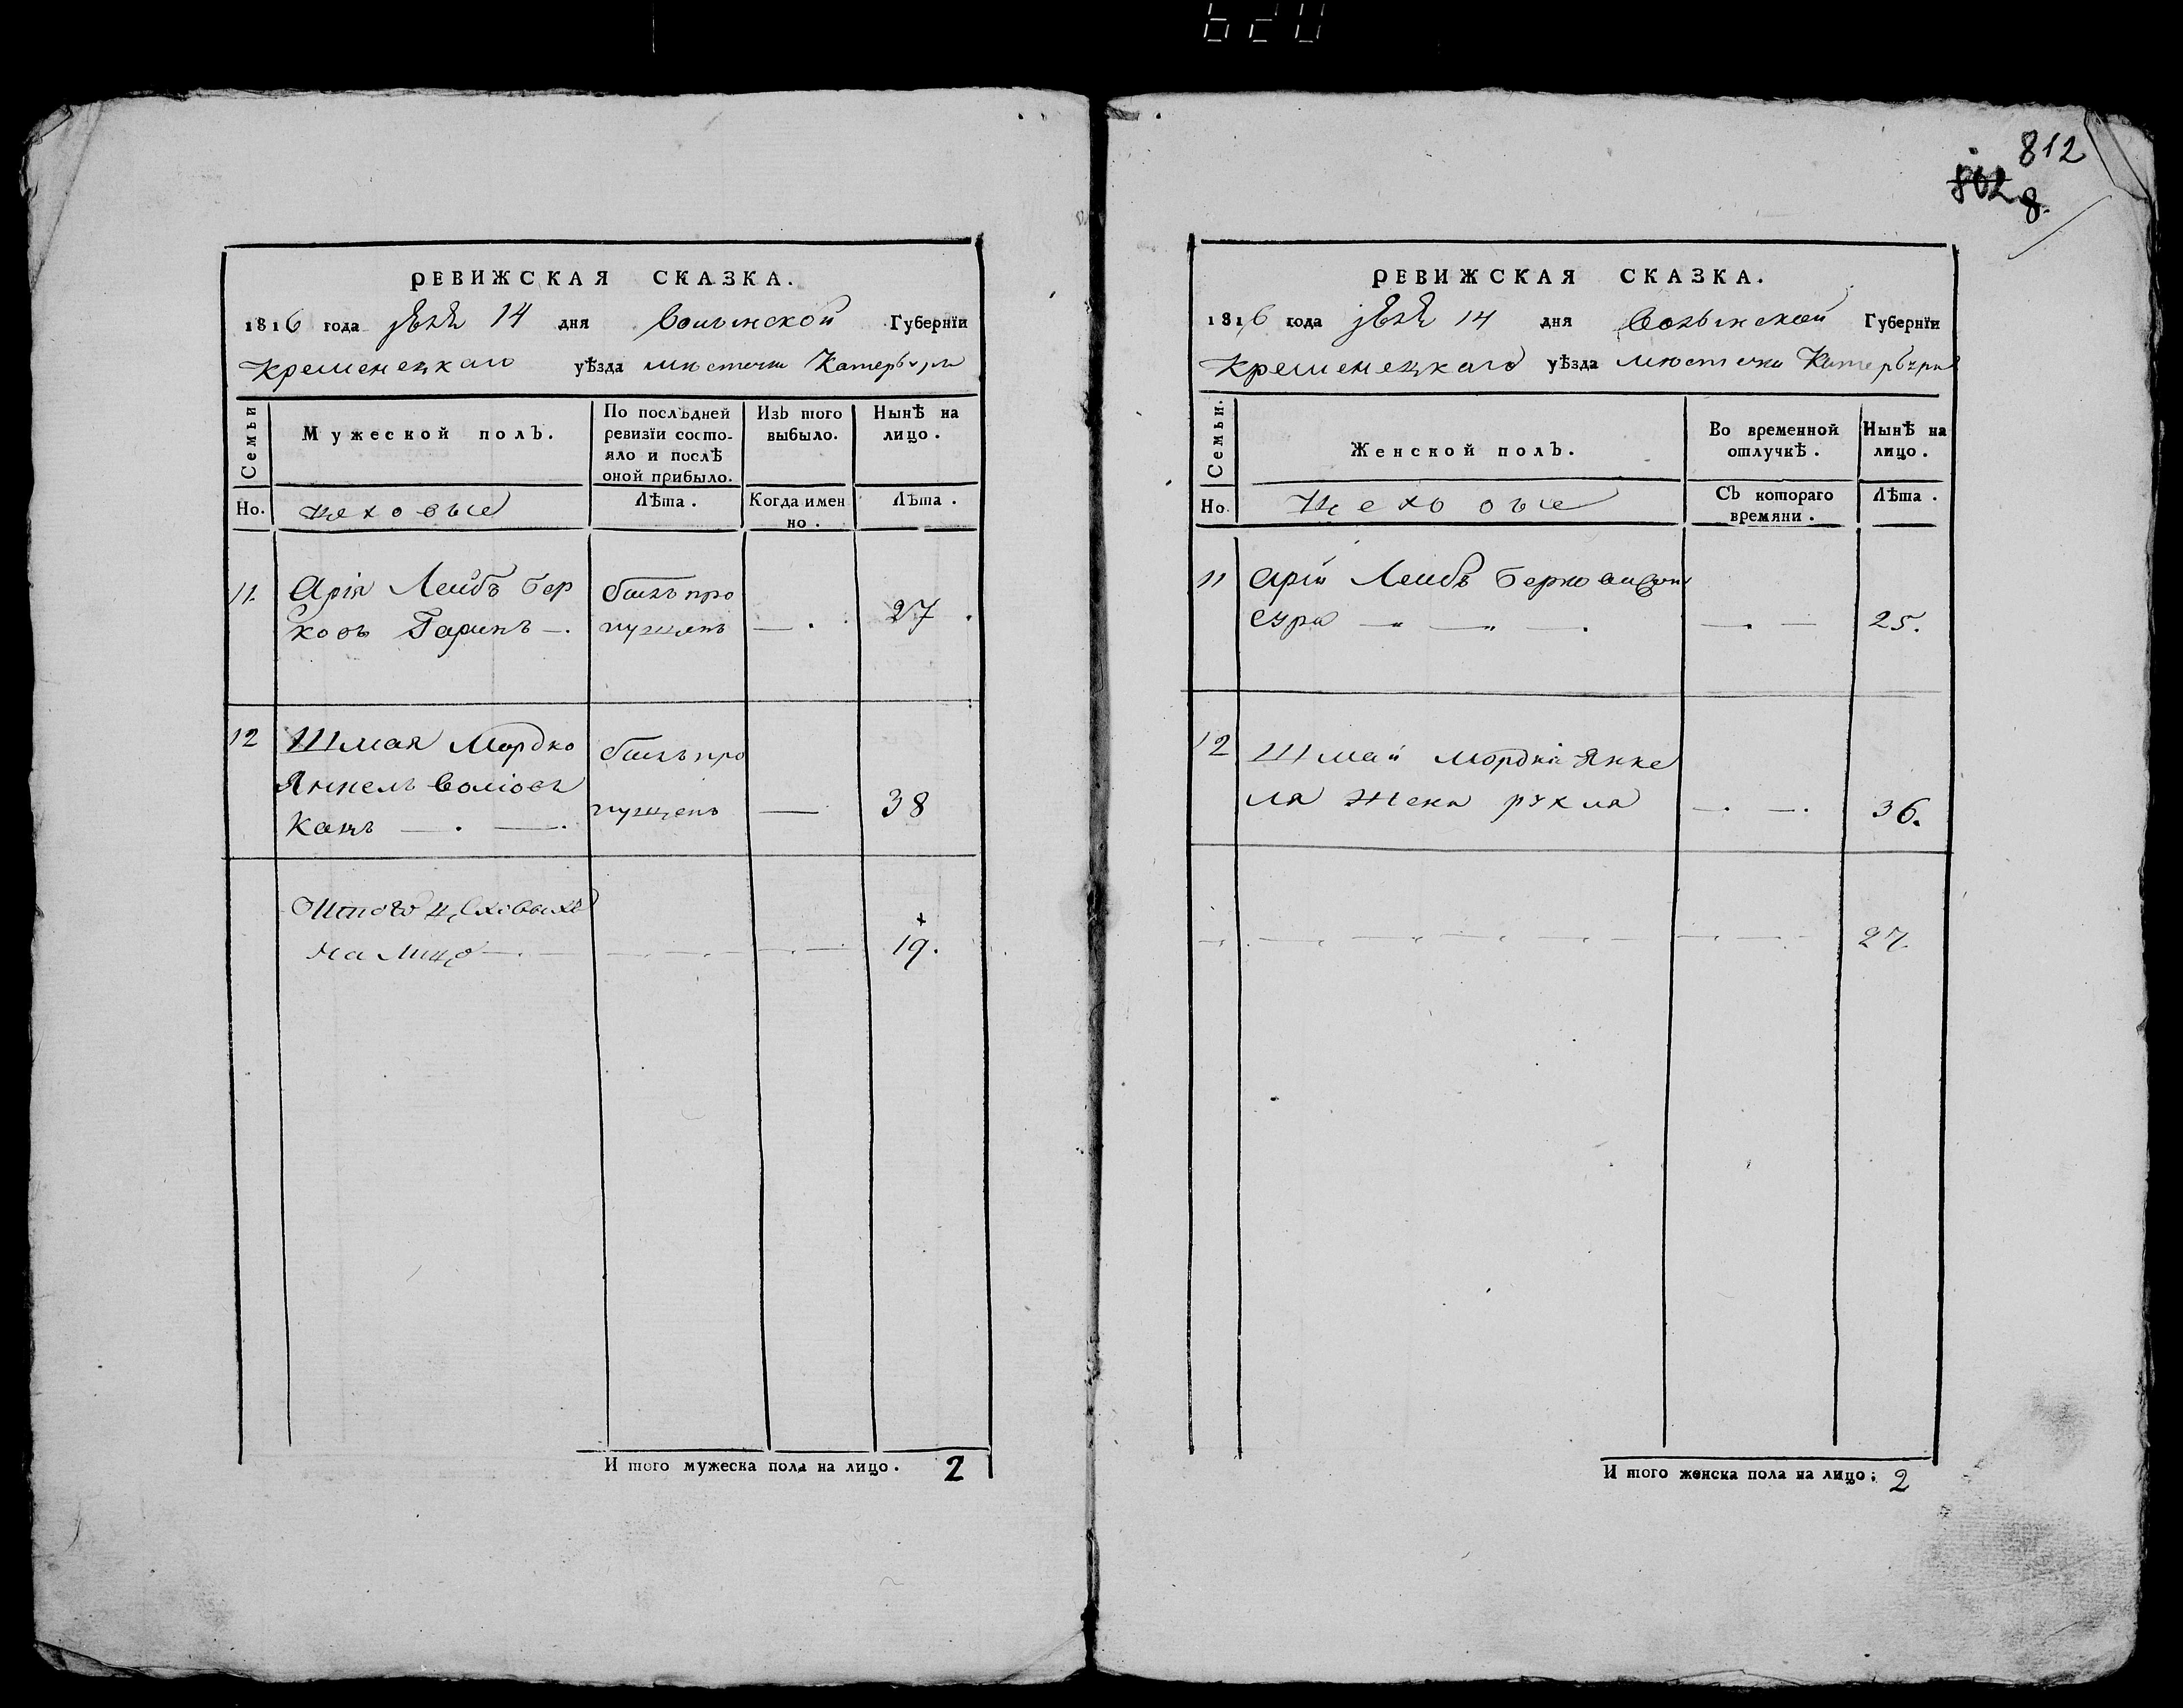 620
РЕВИЖСКАЯ СКАЗКА.
1816 года 14 дня Волынской Губернїи
Кременецкаго уѣзда мѣстечка Катербурга
Семьи
Мужеской полЪ.
По послѣдней ревизїи состояло и послѣ оной прибыло.
ИзЪ того выбыло.
НынѢ на лицо.
Но.
цеховые
ЛѢта.
Когда имен но.
ЛѢта.
11. Арія Леибъ Бер былъ про
ковъ Гаринъ —. пущенъ — . 27.
12 Шмая Мордко былъ про
Янкель
Кацъ — . — . пущенъ — 38
Итого цеховыхъ
на лицо — 19.
И того мужеска пола на лицо. 2
812
802
8.
РЕВИЖСКАЯ СКАЗКА.
1816 года 14 дня Волынской Губернїи
Кременецкаго уѣзда мѣстечка Катербурга
Семьи.
Женской полЪ.
Во временной отлучкѢ.
НынѢ на лицо.
Но.
цеховые
СЪ котораго времяни.
ЛѢта.
11 Арїи Леибъ Берко
сура — — — . — . — 25.
12 Шмаи мордка Янке
ля жена рухля — . — . 36.
27.
И того женска пола на лицо; 2